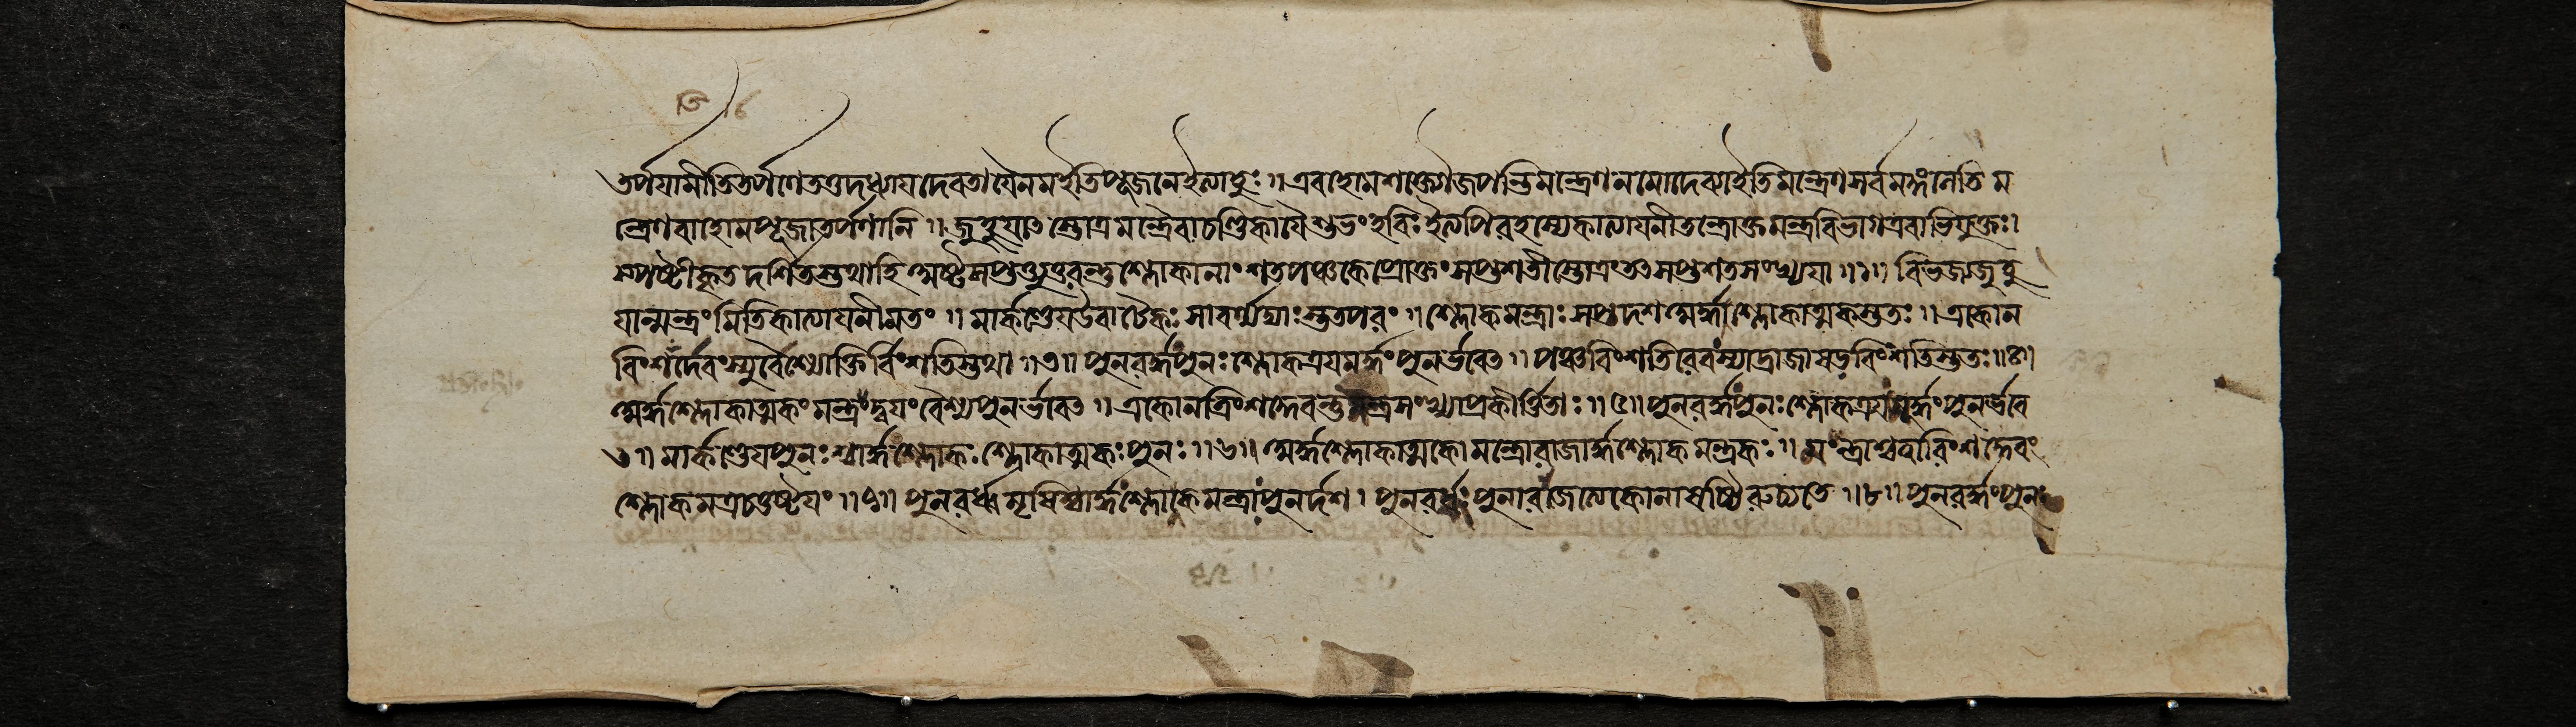 তর্পযামীতিতর্পণেতত্তদধ্যাযদেবতাযৈনমইতিপূজনেইত্যাহুঃ ॥ এবংহোমশক্তৌজপন্তিমন্ত্রেণনমোদেব্যাইতিমন্ত্রেণসর্বমঙ্গলেতিম
ন্ত্রেণবাহোমপূজাতর্পণানি ॥ জুহুযাৎস্তোত্রমন্ত্রৈর্বাচণ্ডিকাযৈশুভংহবিঃইত্যপিরহস্যেকাত্যাযনীতন্ত্রোক্তমন্ত্রবিভাগএবাভিযুক্তঃ।
স্পষ্টীকৃতদর্শিতস্তথাহি অষ্টসপ্তত্যুত্তরন্তুশ্লোকানাংশতপঞ্চকেপ্রোক্তংসপ্তশতীস্তোত্রংতৎসপ্তশতসংখ্যযা ॥১॥ বিভজ্যজুহু
যান্মন্ত্রংমিতিকাত্যাযনীমতং ॥ মার্কণ্ডেযউবাচৈকঃসাবর্ণ্যাদ্যাঃস্ততপরং ॥ শ্লোকমন্ত্রাঃসপ্তদশঅর্দ্ধশ্লোকাত্মকস্ততঃ ॥ একোন
বিংশর্দেবংস্যুর্বৈশ্যোক্তির্বিংশতিস্তথা ॥৩॥ পুনরর্দ্ধংপুনঃশ্লোকত্রযমর্দ্ধংপুনর্ভবেৎ ॥ পঞ্চবিংশতিরেবংস্যাদ্রাজাষড়্বিংশতিস্ততঃ ॥৪॥
অর্দ্ধশ্লোকাত্মকংমন্ত্রদ্বযংবৈশ্যপুনর্ভবেৎ ॥ একোনত্রিংশদেবন্তুমন্ত্রসংখ্যাপ্রকীর্ত্তিতাঃ ॥৫॥ পুনরর্দ্ধংপুনঃশ্লোকত্রযমর্দ্ধংপুনর্ভবে
ৎ ॥ মার্কণ্ডেযপুনঃশ্চার্দ্ধশ্লোকঃশ্লোকাত্মকঃপুনঃ ॥৬॥ অর্দ্ধশ্লোকাত্মকোমন্ত্রোরাজার্দ্ধশ্লোকমন্ত্রকঃ ॥ মংন্ত্রাশ্চত্বারিংশদেবং
শ্লোকমত্রচতুষ্টযং ॥৭॥ পুনরর্ধমৃষিশ্চার্দ্ধংশ্লোকমন্ত্রাপুনর্দশ। পুনরর্ধংপুনারাজেত্যেকোনাষষ্ঠিরুচ্যতে ॥৮॥ পুনরর্দ্ধংপুনঃ